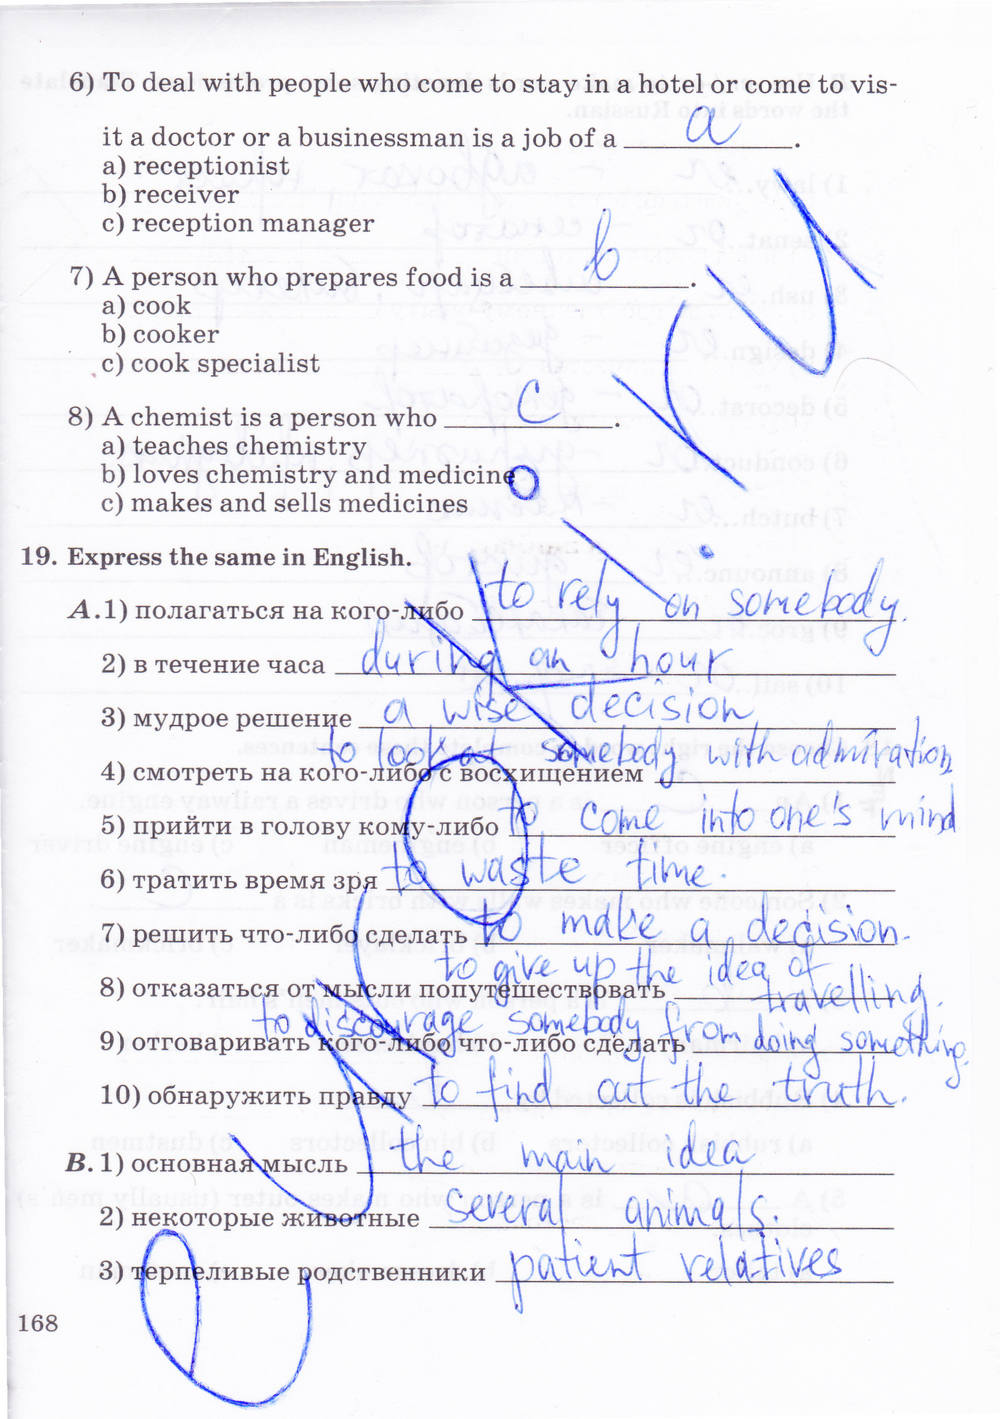 6) To deal with people who come to stay in a hotel or come to vis-
it a doctor or a businessman is a job of a a.
a) receptionist
b) receiver
c) reception manager
7) A person who prepares food is a b.
a) cook
b) cooker
c) cook specialist
8) A chemist is a person who c.
a) teaches chemistry
b) loves chemistry and medicine
c) makes and sells medicines
19. Express the same in English.
A. 1) полагаться на кого-либо to rely on somebody.
2) в течение часа during an hour
3) мудрое решение a wise decision
to look at somebody with admiration
4) смотреть на кого-либо с восхищением
5) прийти в голову кому-либо to come into one's mind
6) тратить время зря to waste time.
7) решить что-либо сделать to make a decision.
to give up the idea of
8) отказаться от мысли попутешествовать travelling.
to discourage somebody from doing something.
9) отговаривать кого-либо что-либо сделать
10) обнаружить правду to find out the truth.
B. 1) основная мысль the main idea
2) некоторые животные several animals.
3) терпеливые родственники patient relatives
168